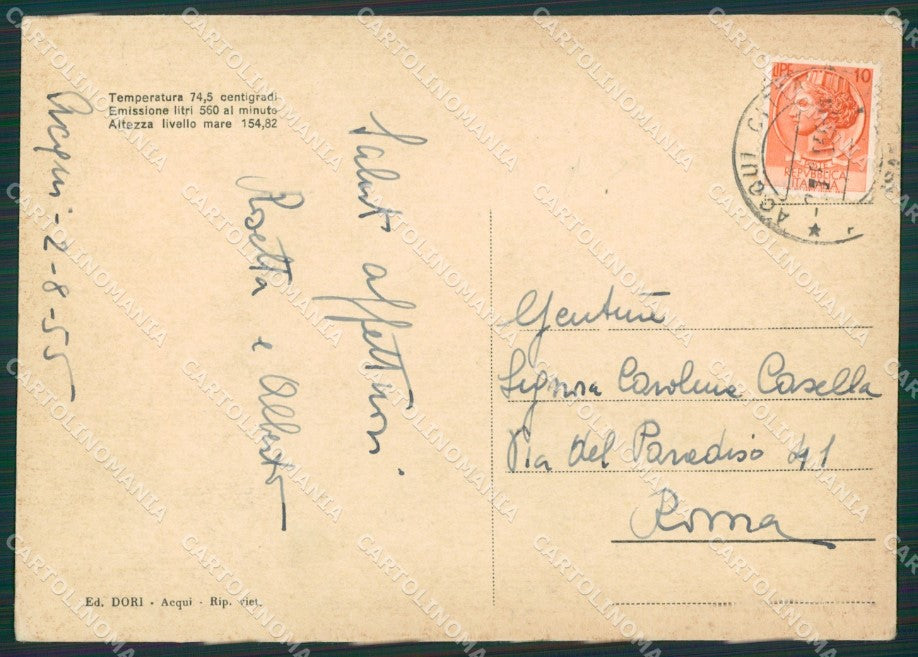 Temperatura 74,5 centigradi
Emissione litri 560 al minuto
Altezza livello mare 154,82
Acqui - 2-8-55
Saluti affettuosi
Rosetta e Alberto
LIRE 10
REPVBBLICA
ITALIANA
ACQUI
Gentile
Signora Carolina Casella
Via del Paradiso 41
Roma
Ed. DORI - Acqui - Rip. viet.
CARTOLINOMANIA